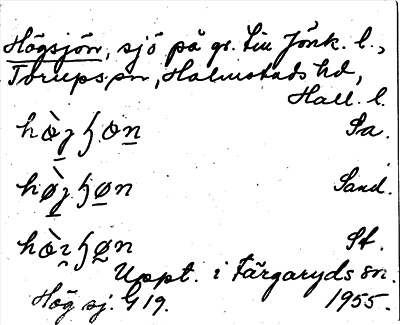 Högsjön, sjö på gr. till Jönk. l.,
Torups sn, Halmstads hd,
Hall. l.
Sa.
Sand.
St.
Uppt. i Färgaryds sn.
Hög sj. G 19. 1955.